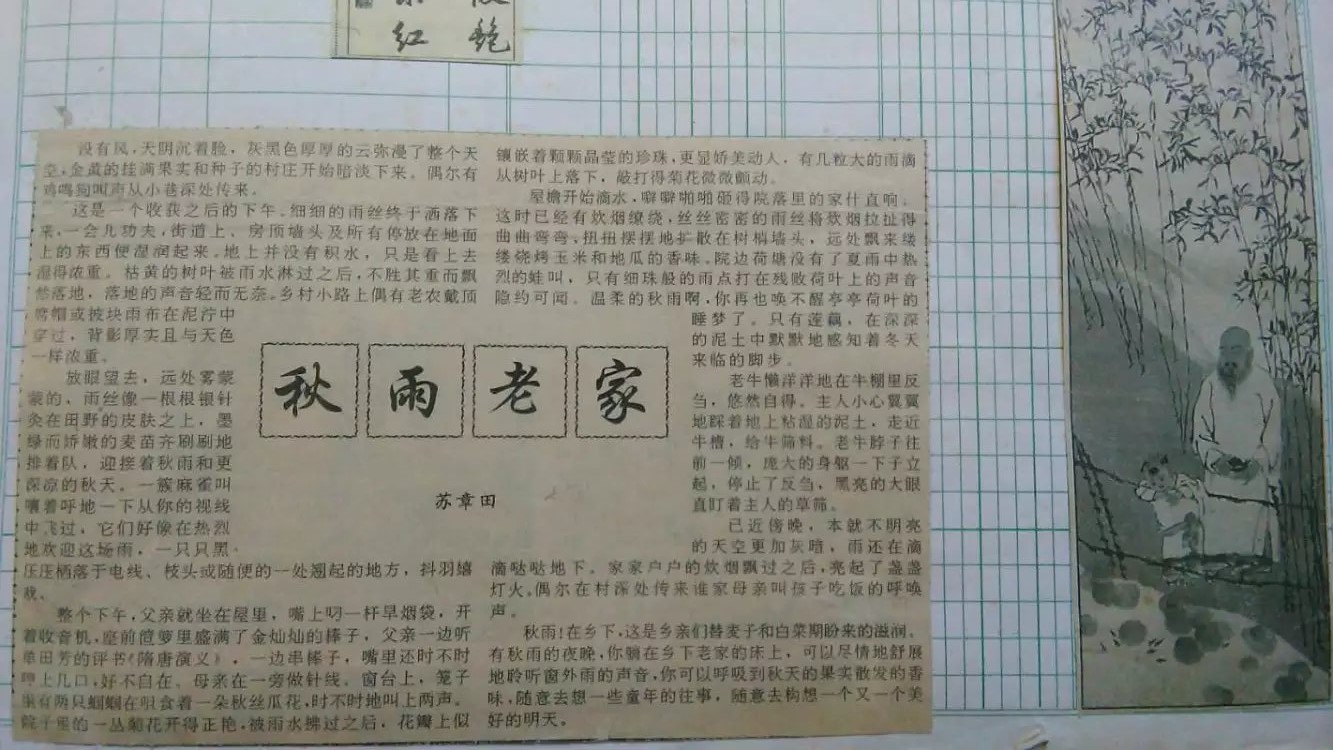 红 艳
没有风,天阴沉着脸，灰黑色厚厚的云弥漫了整个天
空,金黄的挂满果实和种子的村庄开始暗淡下来。偶尔有
鸡鸣狗叫声从小巷深处传来。
这是一个收获之后的下午。细细的雨丝终于洒落下
来,一会儿功夫,街道上、房顶墙头及所有停放在地面
上的东西便湿润起来。地上并没有积水，只是看上去
湿得浓重。枯黄的树叶被雨水淋过之后,不胜其重而飘
然落地，落地的声音轻而无奈。乡村小路上偶有老农戴顶
帽或披块雨布在泥泞中
穿过，背影厚实且与天色
一样浓重。
放眼望去，远处雾蒙
蒙的，雨丝像一根根银针
灸在田野的皮肤之上，墨
绿而娇嫩的麦苗齐刷刷地
排着队，迎接着秋雨和更
深凉的秋天。一簇麻雀叫
嚷着呼地一下从你的视线
中飞过，它们好像在热烈
地欢迎这场雨，一只只黑
压压栖落于电线、枝头或随便的一处翘起的地方，抖羽嬉
戏。
整个下午，父亲就坐在屋里，嘴上叼一杆旱烟袋，开
着收音机,座前笸箩里盛满了金灿灿的棒子，父亲一边听
单田芳的评书《隋唐演义》，一边串棒子，嘴里还时不时
上几口,好不自在。母亲在一旁做针线。窗台上，笼子
里有两只蝈蝈在啃食着一朵秋丝瓜花,时不时地叫上两声。
院子里的一丛菊花开得正艳,被雨水拂过之后，花瓣上似
镶嵌着颗颗晶莹的珍珠,更显娇美动人，有几粒大的雨滴
从树叶上落下，敲打得菊花微微颤动。
屋檐开始滴水，噼噼啪啪砸得院落里的家什直响。
这时已经有炊烟缭绕，丝丝密密的雨丝将炊烟拉扯得
曲曲弯弯、扭扭摆摆地扩散在树梢墙头，远处飘来缕
缕烧烤玉米和地瓜的香味。院边荷塘没有了夏雨中热
烈的蛙叫，只有细珠般的雨点打在残败荷叶上的声音
隐约可闻。温柔的秋雨啊,你再也唤不醒亭亭荷叶的
睡梦了。只有莲藕，在深深
的泥土中默默地感知着冬天
来临的脚步。
老牛懒洋洋地在牛棚里反
刍，悠然自得。主人小心翼翼
地踩着地上粘湿的泥土，走近
牛槽，给牛筛料。老牛脖子往
前一倾，庞大的身躯一下子立
起，停止了反刍，黑亮的大眼
直盯着主人的草筛。
已近傍晚，本就不明亮
的天空更加灰暗，雨还在滴
滴哒哒地下。家家户户的炊烟飘过之后,亮起了盏盏
灯火。偶尔在村深处传来谁家母亲叫孩子吃饭的呼唤
声。
秋雨!在乡下,这是乡亲们替麦子和白菜期盼来的滋润。
有秋雨的夜晚,你躺在乡下老家的床上，可以尽情地舒展
地聆听窗外雨的声音,你可以呼吸到秋天的果实散发的香
味,随意去想一些童年的往事，随意去构想一个又一个美
好的明天。
秋雨老家
苏章田